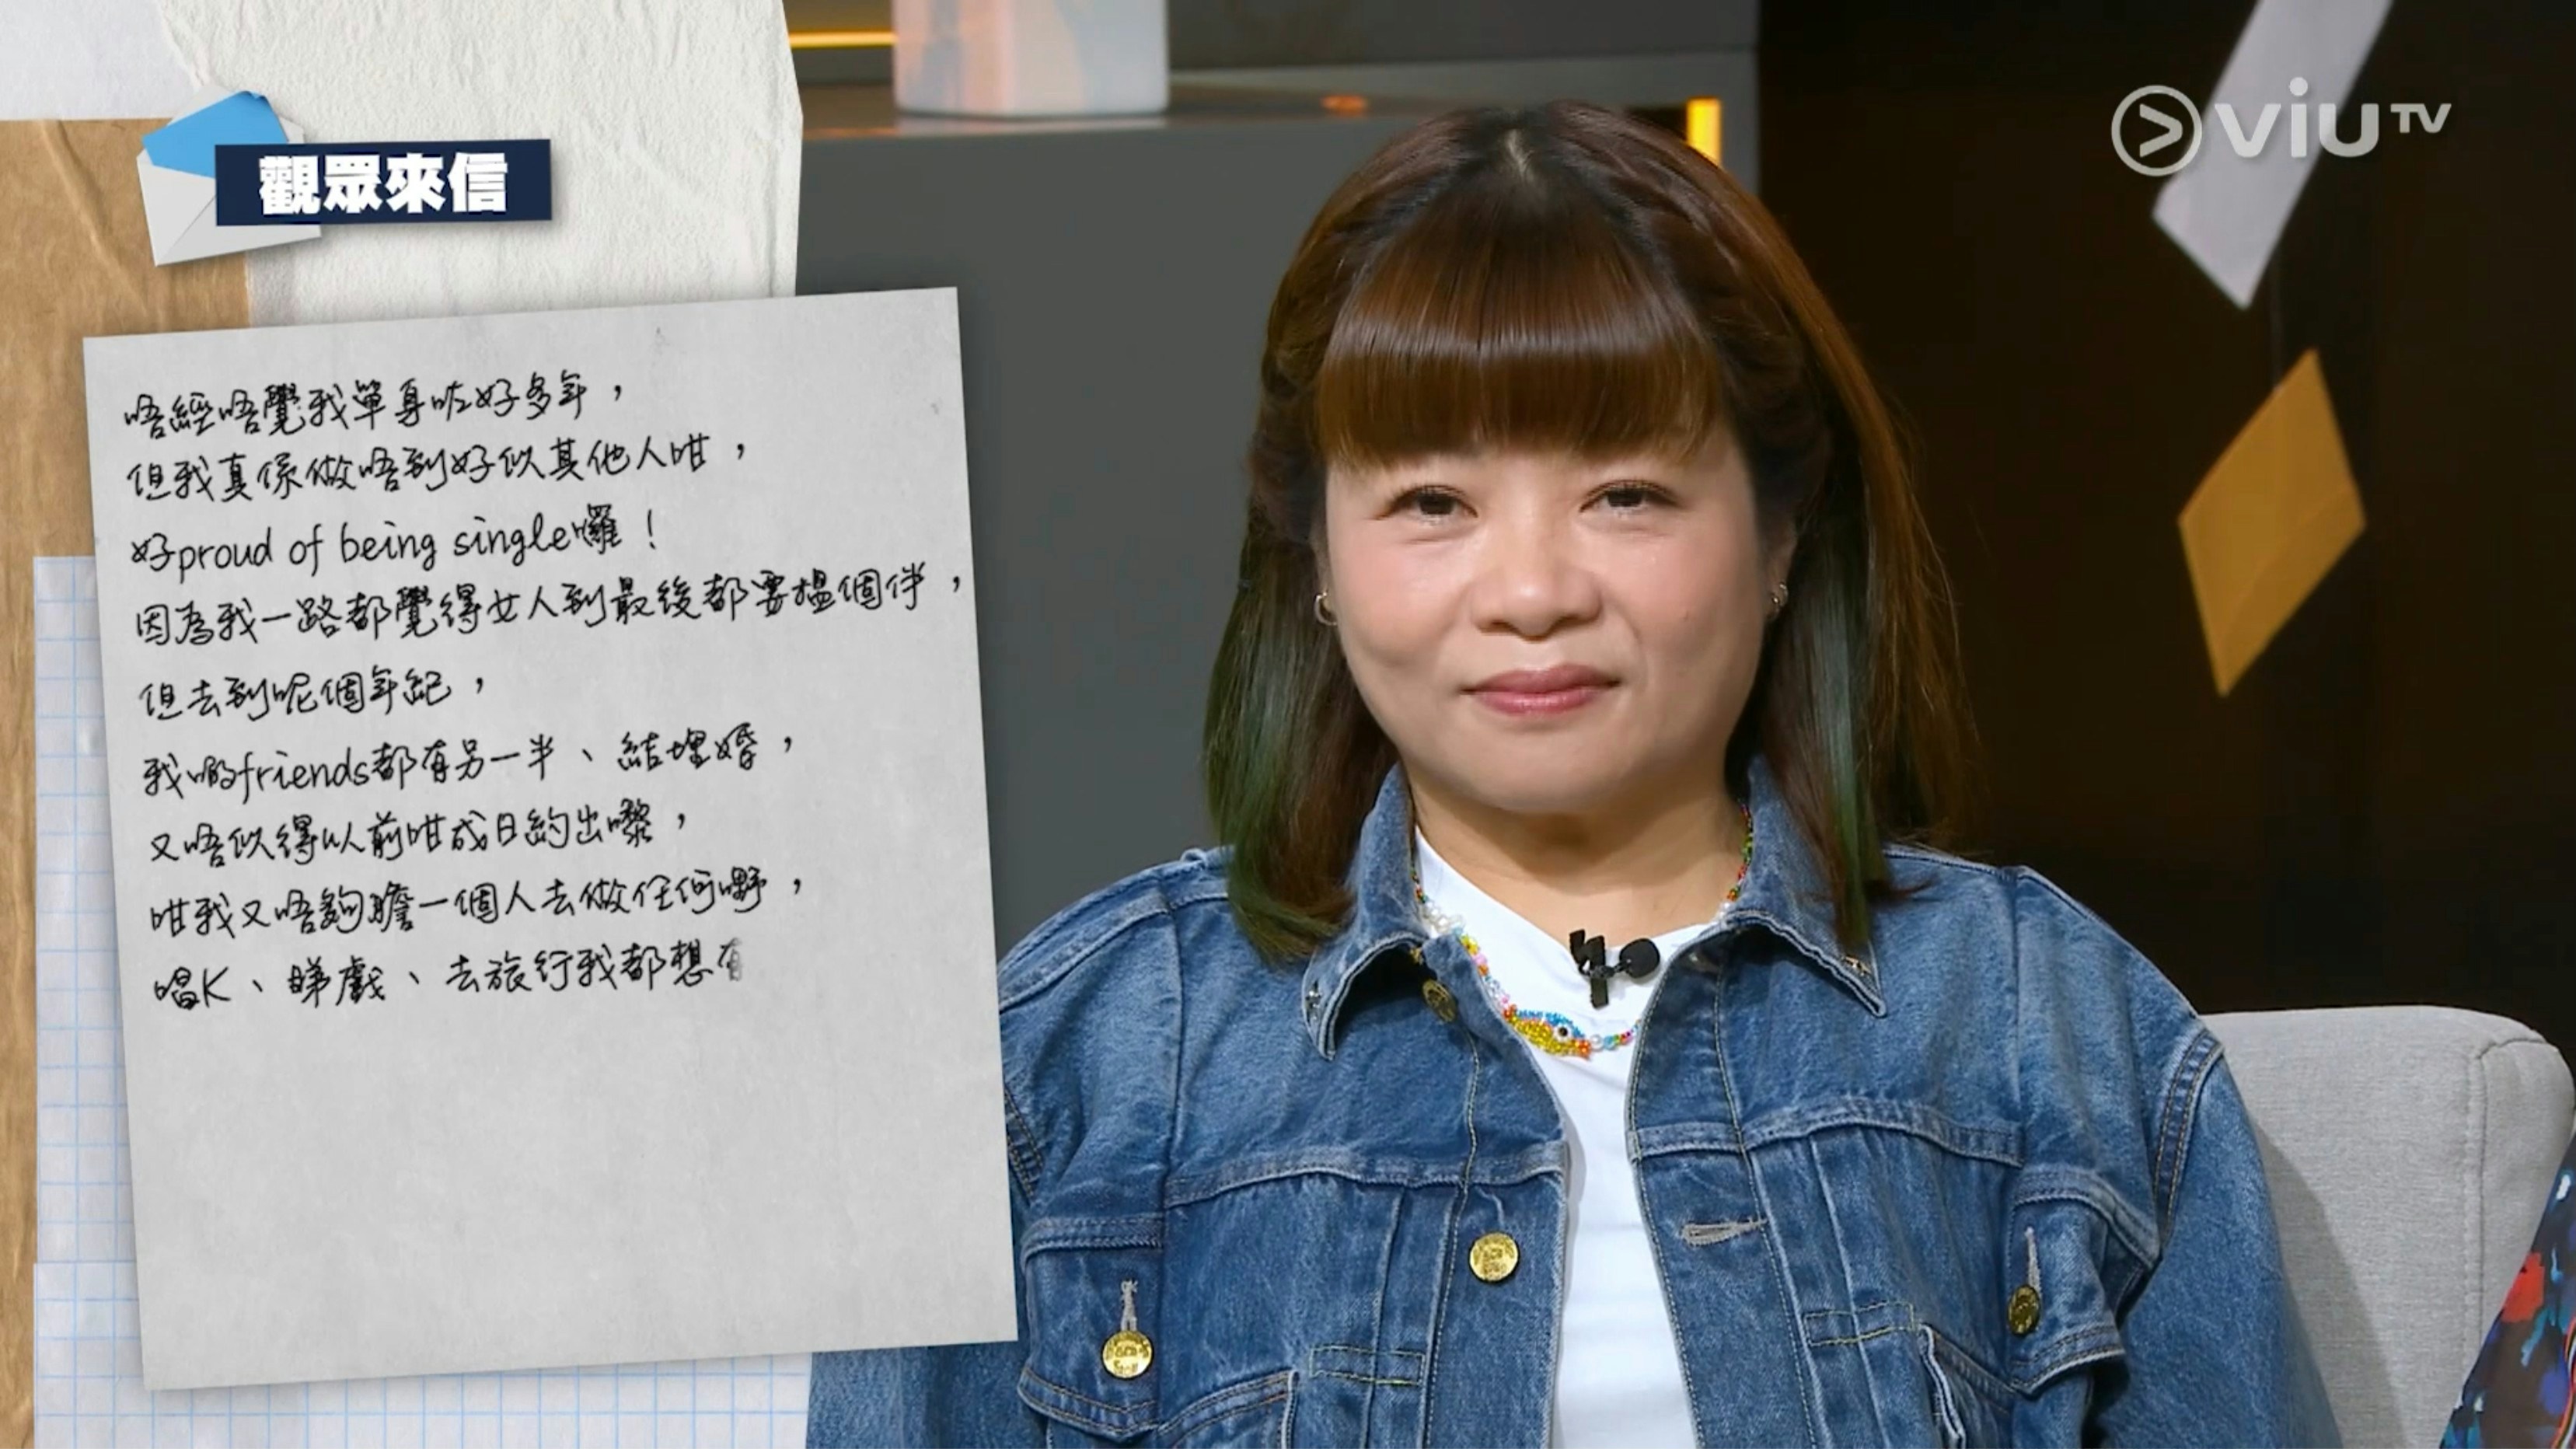 觀眾來信
viuTV
唔經唔覺我單身咗好多年，
但我真係做唔到好似其他人咁，
好proud of being single囉！
因為我一路都覺得女人到最後都要搵個伴，
但去到呢個年紀，
我啲friends都有另一半、結埋婚，
又唔似得以前咁成日約出嚟，
咁我又唔夠膽一個人去做任何嘢，
唱K、睇戲、去旅行我都想有